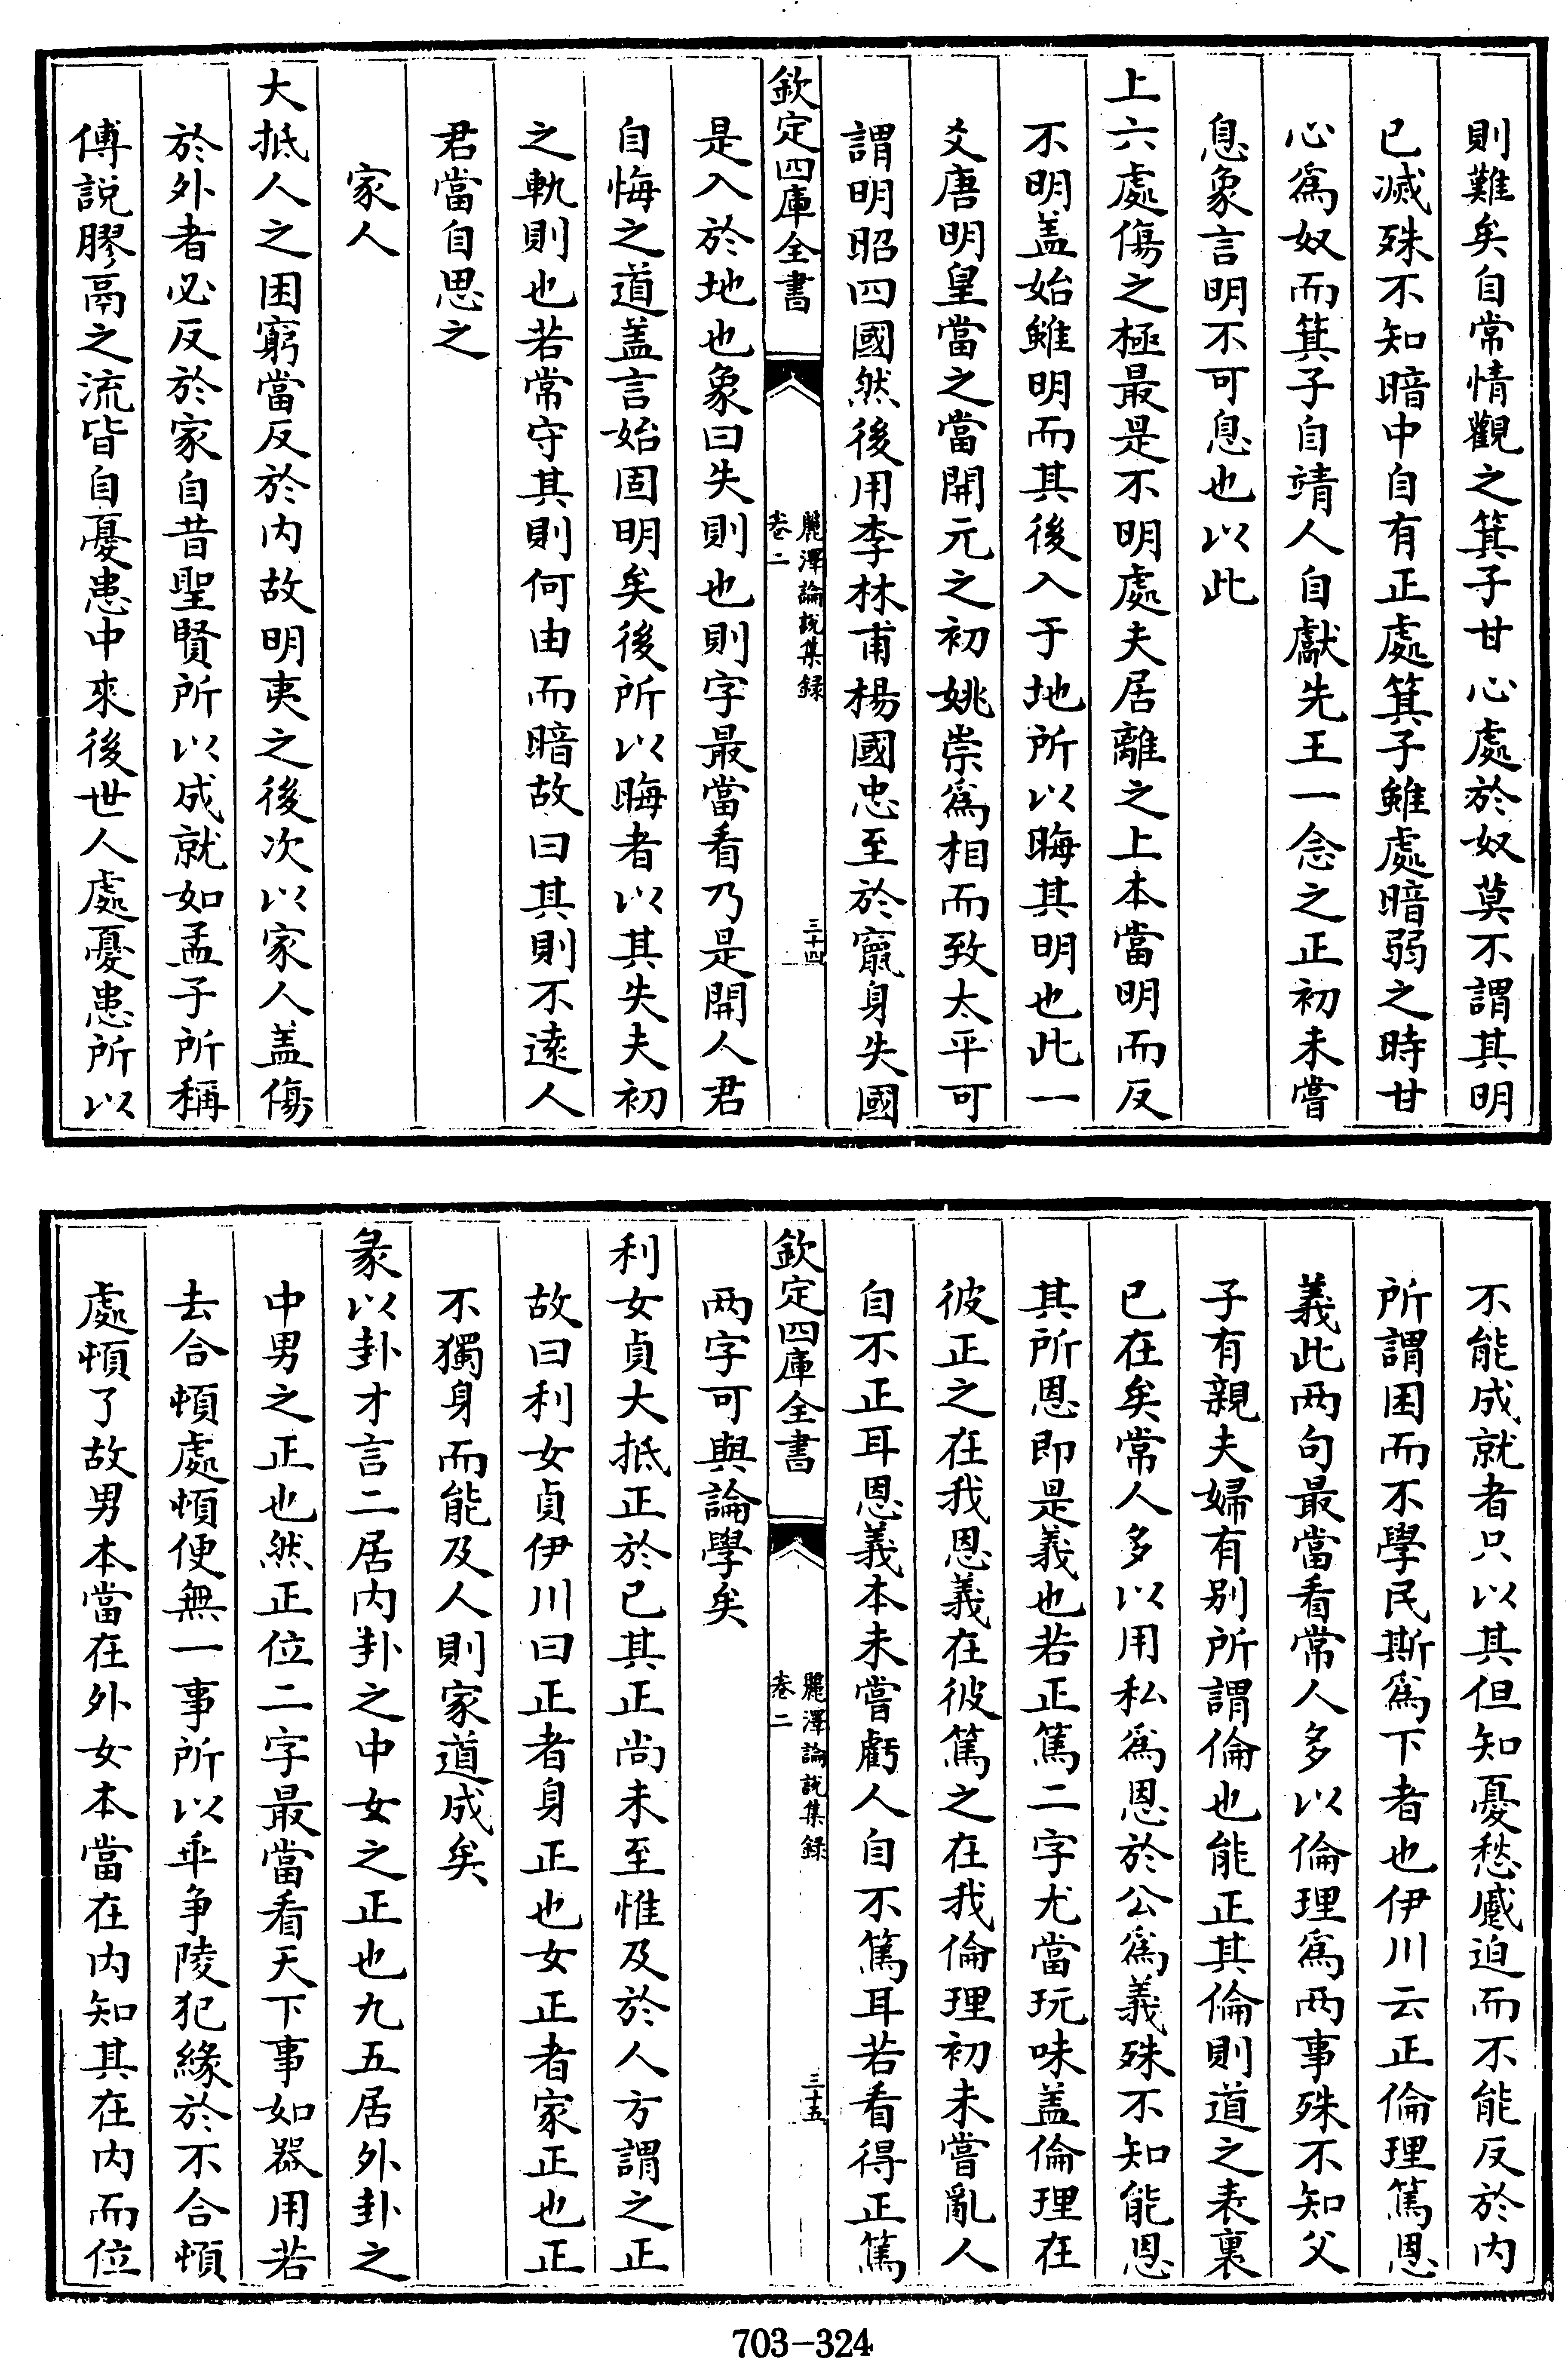 則難矣自常情觀之箕子甘心處於奴莫不謂其明
已滅殊不知暗中自有正處箕子雖處暗弱之時甘
心為奴而箕子自靖人自獻先王一念之正初未嘗
息象言明不可息也以此
上六處傷之極最是不明處夫居離之上本當明而反
不明盖始雖明而其後入于地所以晦其明也此一
爻唐明皇當之當開元之初姚崇為相而致太平可
謂明昭四國然後用李林甫楊國忠至於竄身失國
欽定四庫全書
麗澤論說集録
卷二
三十四
是入於地也象曰失則也則字最當看乃是開人君
自悔之道盖言始固明矣後所以晦者以其失夫初
之軌則也若常守其則何由而暗故曰其則不遠人
君當自思之
家人
大抵人之困窮當反於内故明夷之後次以家人盖傷
於外者必反於家自昔聖賢所以成就如孟子所稱
傅說膠鬲之流皆自憂患中來後世人處憂患所以
不能成就者只以其但知憂愁慼迫而不能反於内
所謂困而不學民斯為下者也伊川云正倫理篤恩
義此两句最當看常人多以倫理為两事殊不知父
子有親夫婦有别所謂倫也能正其倫則道之表裏
已在矣常人多以用私為恩於公為義殊不知能恩
其所恩即是義也若正篤二字尤當玩味盖倫理在
彼正之在我恩義在彼篤之在我倫理初未嘗亂人
自不正耳恩義本未嘗虧人自不篤耳若看得正篤
欽定四庫全書
麗澤論說集録
卷二
三十五
两字可與論學矣
利女貞大抵正於已其正尚未至惟及於人方謂之正
故曰利女貞伊川曰正者身正也女正者家正也正
不獨身而能及人則家道成矣
彖以卦才言二居内卦之中女之正也九五居外卦之
中男之正也然正位二字最當看天下事如器用若
去合頓處頓便無一事所以乖争陵犯緣於不合頓
處頓了故男本當在外女本當在内知其在内而位
703-324